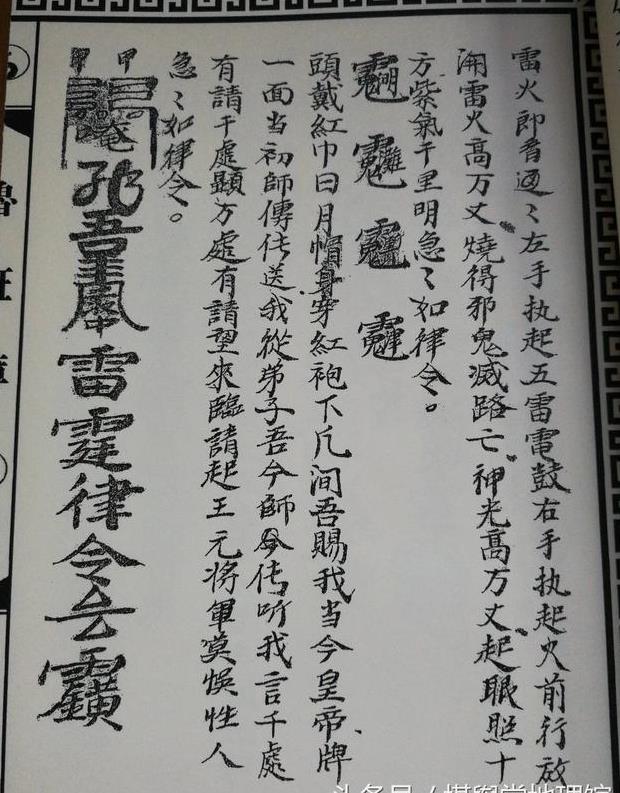 雷火即看通〻左手执起五雷電鼓右手执起火前行放
雷火高万丈燒得邪鬼滅路亡神光高万丈起眼照十
方紫氣千里明急〻如律令。
頭戴紅巾日月帽身穿紅袍下凡间吾賜我当今皇帝牌
一面当初師傳传送我從弟子吾今師传听我言千處
有請千處顯万處有請望來臨請起王元将軍莫悮性人
急〻如律令。
甲 甲
吾 雷霆律令